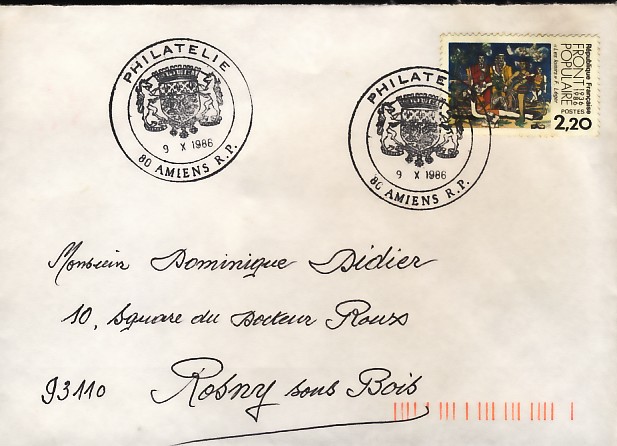 PHILATELIE
9 X 1986
80 AMIENS R.P.
PHILATE
9 X 1986
80 AMIENS R.P.
République Française
FRONT 1936
POPULAIRE 1986
POSTES
2,20
Monsieur Dominique Didier
10, Square du Docteur Roux
93110 Rosny sous Bois